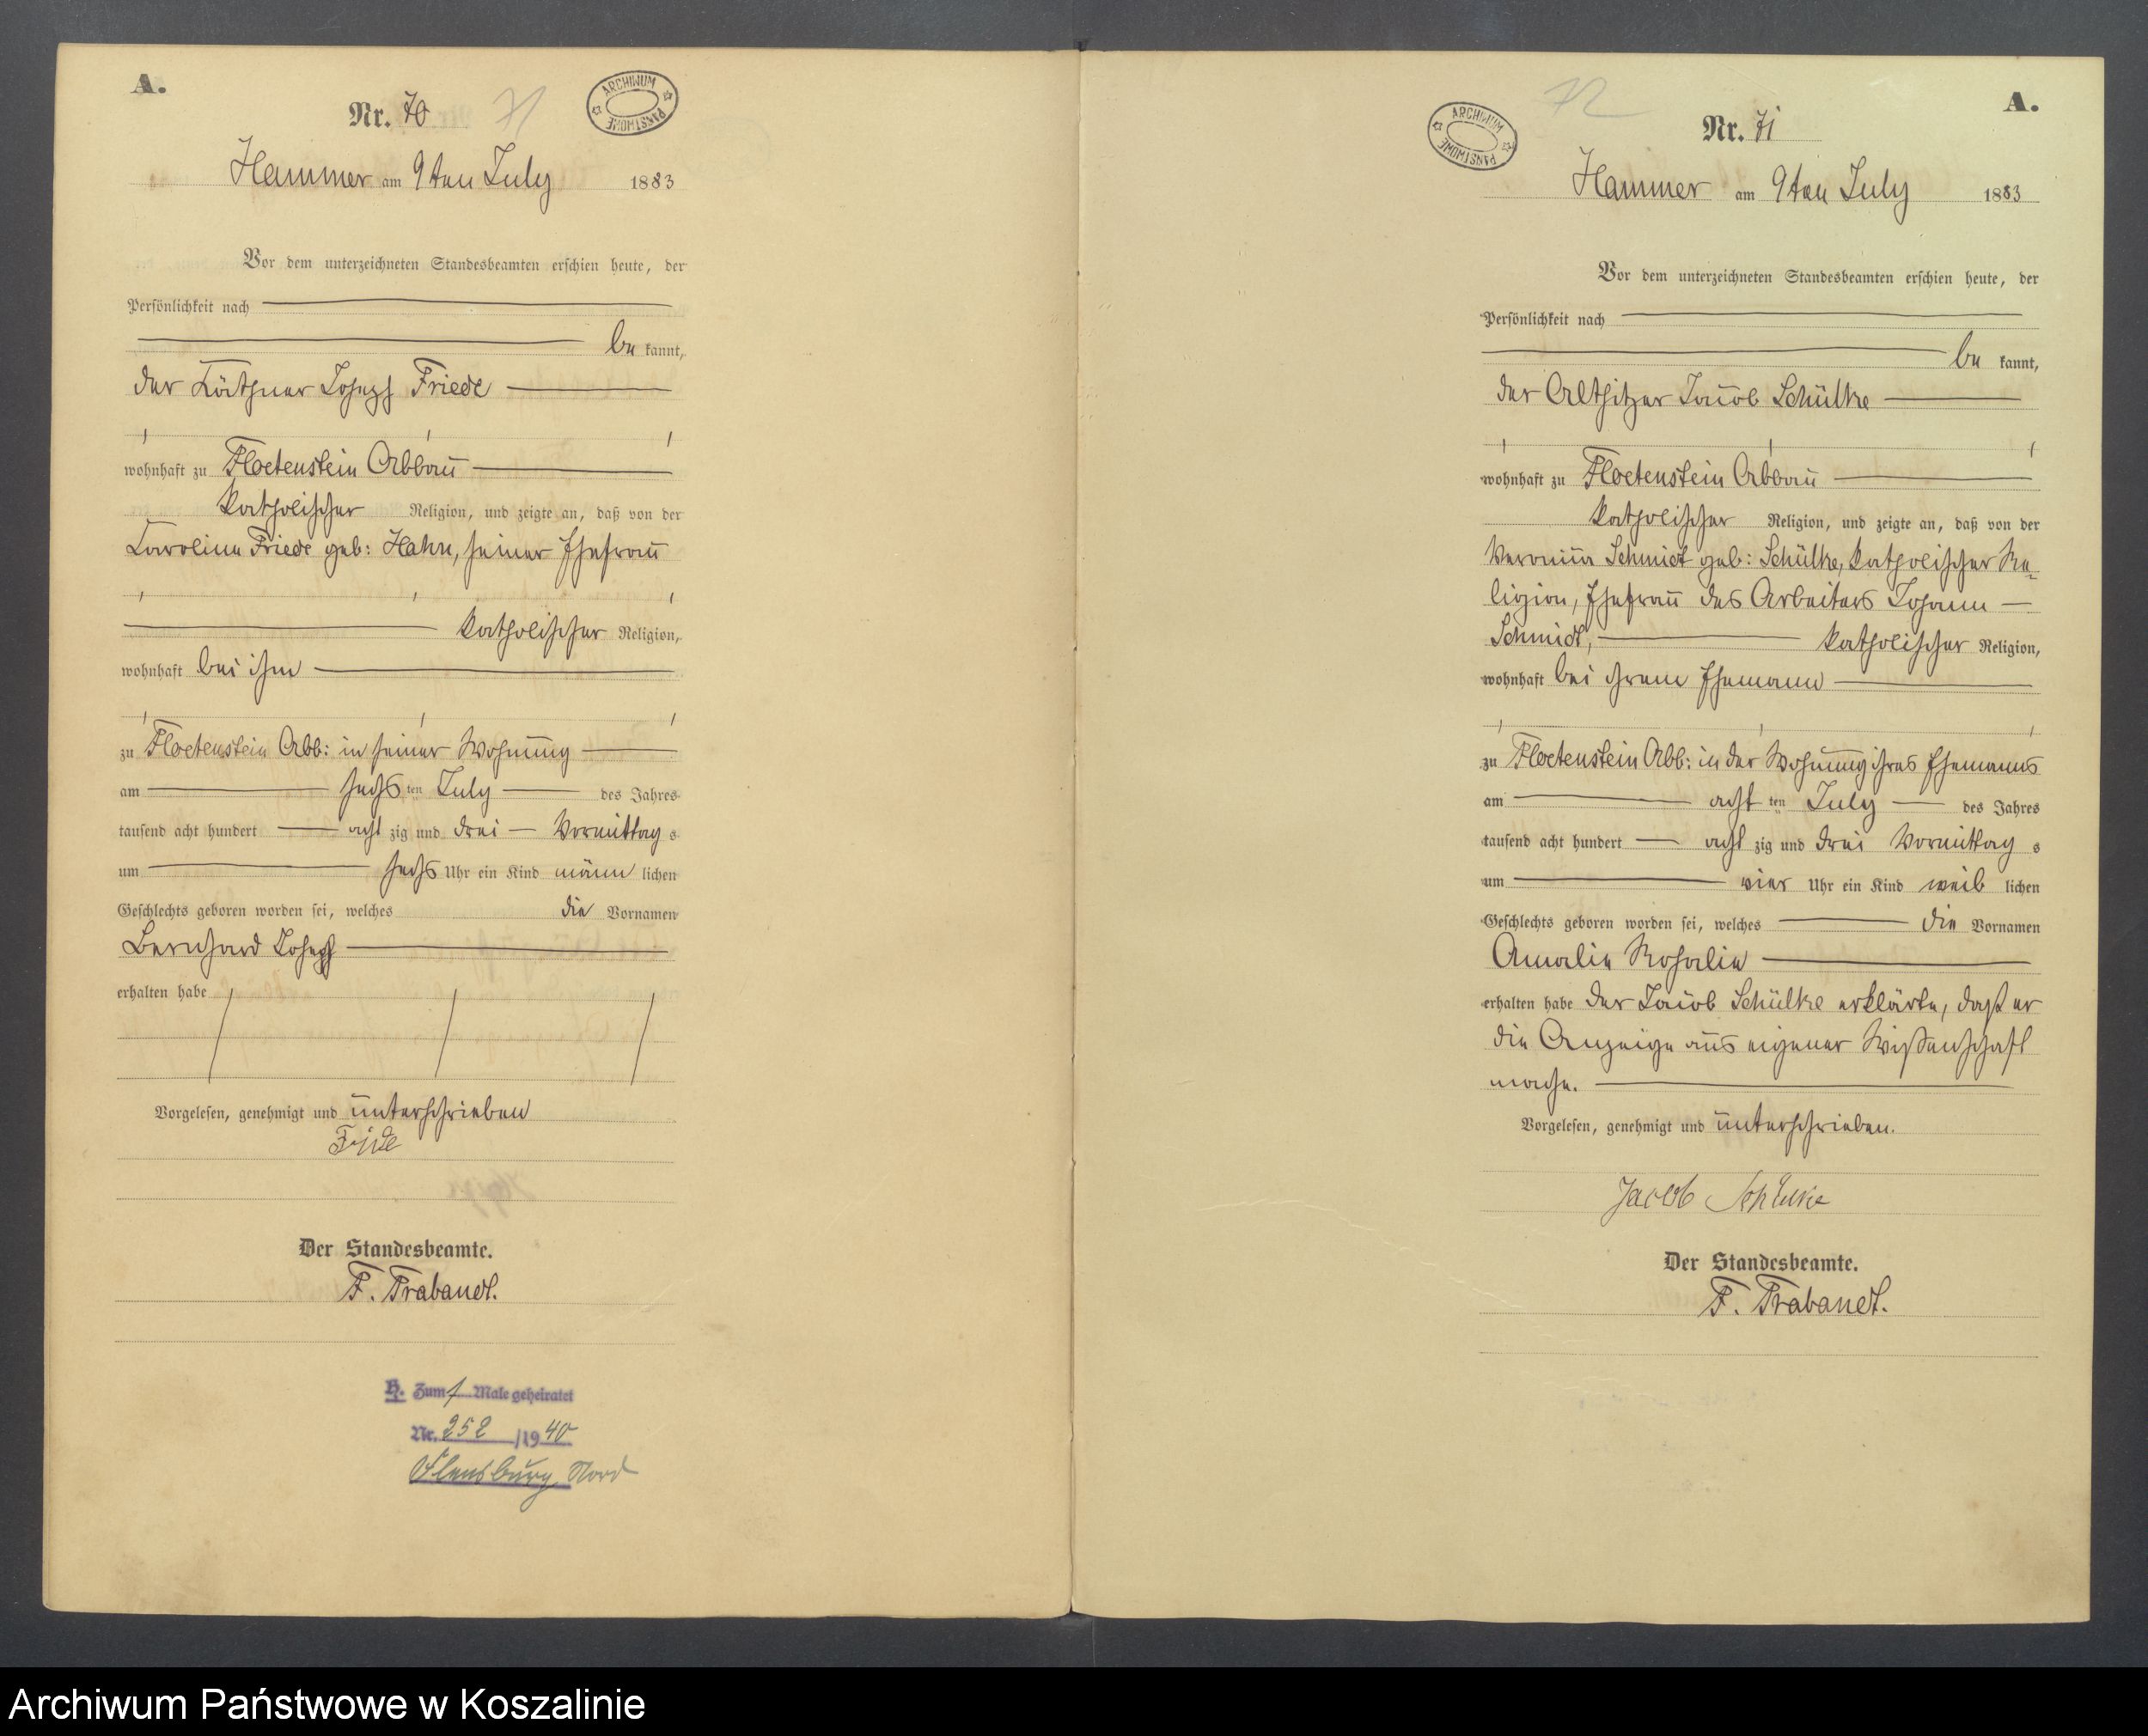 A.
Nr. 70
71
ARCHIWUM PAŃSTWOWE
Hammer am 9ten July 1883
Vor dem unterzeichneten Standesbeamten erschien heute, der
Persönlichkeit nach
be kannt,
der Käthner Joseph Friede
wohnhaft zu Floetenstein Abbau
katholischer Religion, und zeigte an, daß von der
Caroline Friede geb: Hahn, seiner Ehefrau
katholischer Religion,
wohnhaft bei ihm
zu Floetenstein Abb: in seiner Wohnung
am sechs ten July des Jahres
tausend acht hundert acht zig und drei Vormittag s
um sechs Uhr ein Kind männ lichen
Geschlechts geboren worden sei, welches die Vornamen
Bernhard Joseph
erhalten habe
Vorgelesen, genehmigt und unterschrieben
Der Standesbeamte.
F. Trabandt.
H. Zum 1 Male geheiratet
Nr. 252 /19 40
Flensburg Nord
A.
72
Nr. 71
ARCHIWUM PAŃSTWOWE
Hammer am 9ten July 1883
Vor dem unterzeichneten Standesbeamten erschien heute, der
Persönlichkeit nach
be kannt,
der Altsitzer Jacob Schülke
wohnhaft zu Floetenstein Abbau
katholischer Religion, und zeigte an, daß von der
Veronica Schmidt geb: Schülke, katholischer Re-
ligion, Ehefrau des Arbeiters Johann
Schmidt, katholischer Religion,
wohnhaft bei ihrem Ehemann
zu Floetenstein Abb: in der Wohnung ihres Ehemanns
am acht ten July des Jahres
tausend acht hundert acht zig und drei Vormittag s
um vier Uhr ein Kind weib lichen
Geschlechts geboren worden sei, welches die Vornamen
Amalie Rosalie
erhalten habe der Jacob Schülke erklärte, daß er
die Anzeige aus eigener Wißenschaft
mache.
Vorgelesen, genehmigt und unterschrieben.
Jacob Schülke
Der Standesbeamte.
F. Trabandt.
Archiwum Państwowe w Koszalinie